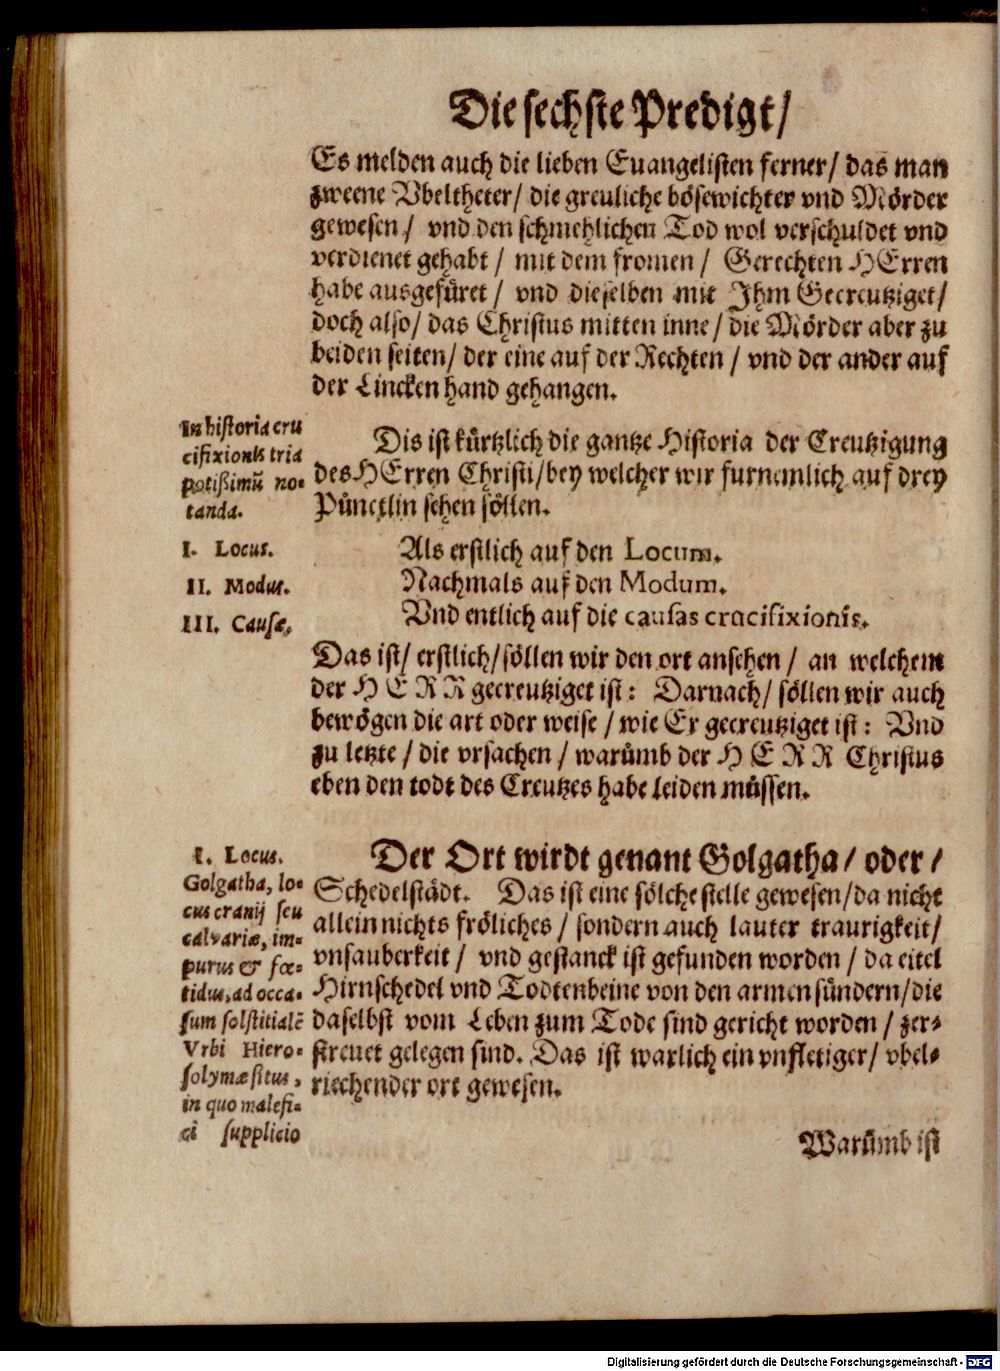 Die sechste Predigt/
Es melden auch die lieben Euangelisten ferner/ das man
zweene Vbeltheter/ die greuliche bösewichter vnd Mörder
gewesen/ vnd den schmehlichen Tod wol verschuldet vnd
verdienet gehabt/ mit dem fromen/ Gerechten HErren
habe ausgefüret/ vnd dieselben mit Jhm Gecreutziget/
doch also/ das Christus mitten inne/ die Mörder aber zu
beiden seiten/ der eine auf der Rechten/ vnd der ander auf
der Lincken hand gehangen.
In historia cru
cifixionis tria
potißimũ no-
tanda.
Dis ist kürtzlich die gantze Historia der Creutzigung
des HErren Christi/ bey welcher wir furnemlich auf drey
Pünctlin sehen söllen.
I. Locus.
II. Modus.
III. Causæ.
Als erstlich auf den Locum.
Nachmals auf den Modum.
Vnd entlich auf die causas crucifixionis.
Das ist/ erstlich/ söllen wir den ort ansehen/ an welchem
der HERR gecreutziget ist: Darnach/ söllen wir auch
bewögen die art oder weise/ wie Er gecreutziget ist: Vnd
zu letzte/ die vrsachen/ warümb der HERR Christus
eben den todt des Creutzes habe leiden müssen.
I. Locus.
Golgatha, lo-
cus cranij seu
calvariæ, im-
purus & fœ-
tidus, ad occa-
sum solstitialẽ
Vrbi Hiero-
solymæ situs,
in quo malefi-
ci supplicio
Der Ort wirdt genant Golgatha/ oder/
Schedelstädt. Das ist eine sölche stelle gewesen/ da nicht
allein nichts fröliches/ sondern auch lauter traurigkeit/
vnsauberkeit/ vnd gestanck ist gefunden worden/ da eitel
Hirnschedel vnd Todtenbeine von den armen sündern/ die
daselbst vom Leben zum Tode sind gericht worden/ zer-
streuet gelegen sind. Das ist warlich ein vnfletiger/ vbel-
riechender ort gewesen.
Warümb ist
Digitalisierung gefördert durch die Deutsche Forschungsgemeinschaft - DFG